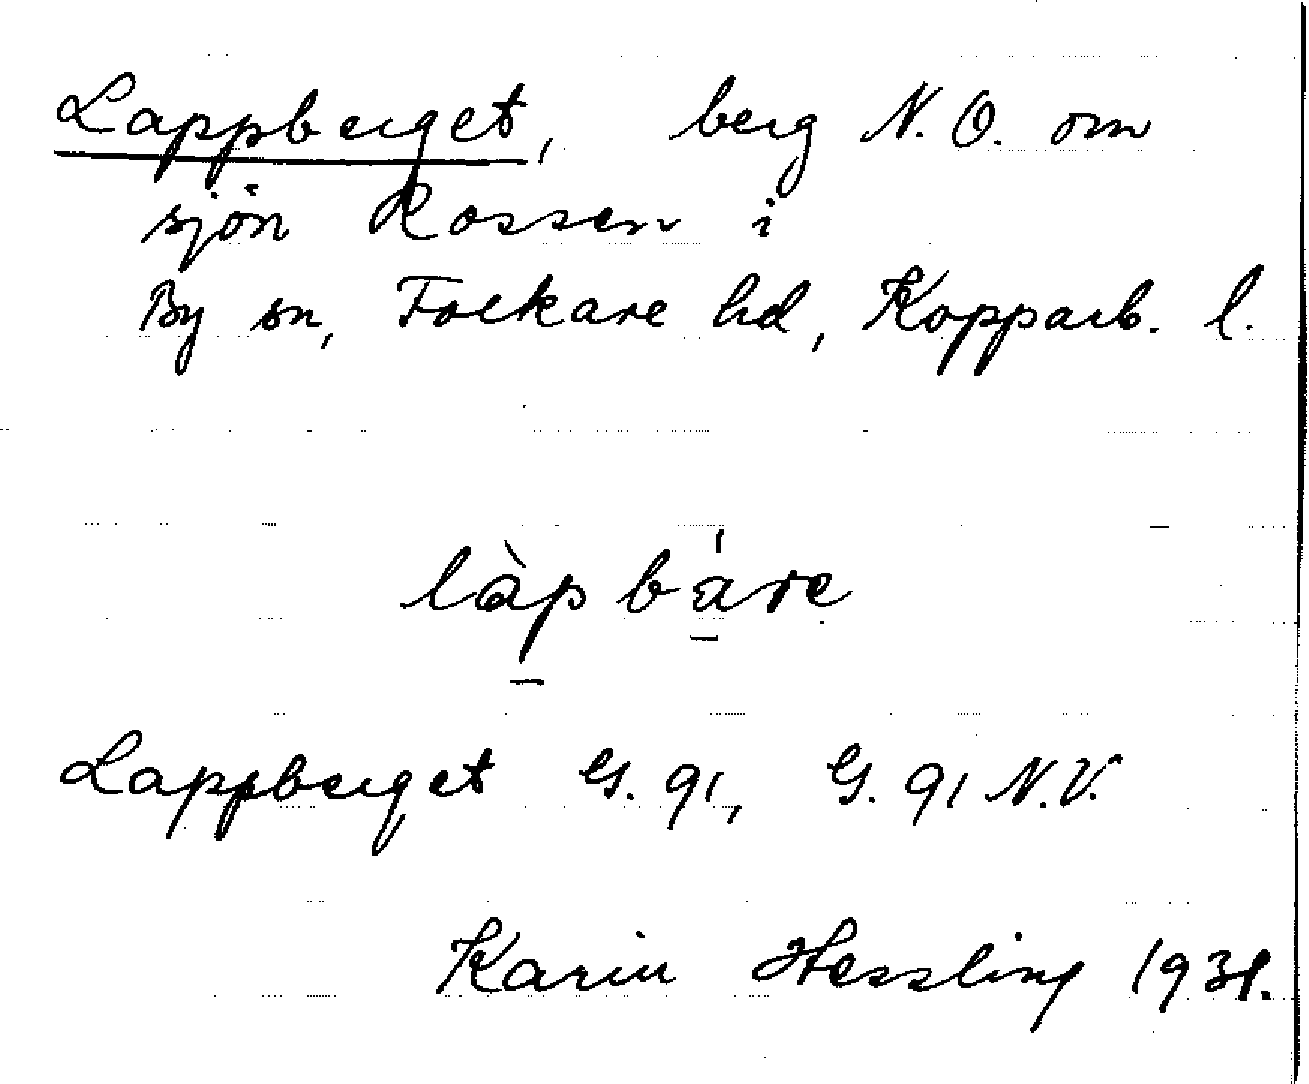 Lappberget, berg N.O. om
sjön Rossen i
By sn, Folkare hd, Kopparb. l.
làp bá̱re
Lappberget G. 91, G. 91 N.V.
Karin Hessling 1931.